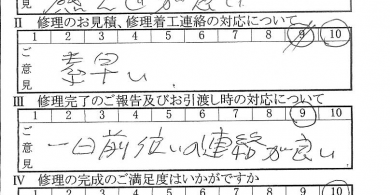 II 修理のお見積、修理着工連絡の対応について
1 2 3 4 5 6 7 8 9 10
ご意見
素早い
III 修理完了のご報告及びお引渡し時の対応について
1 2 3 4 5 6 7 8 9 10
ご意見
一日前位いの連絡が良い
IV 修理の完成のご満足度はいかがですか
1 2 3 4 5 6 7 8 9 10